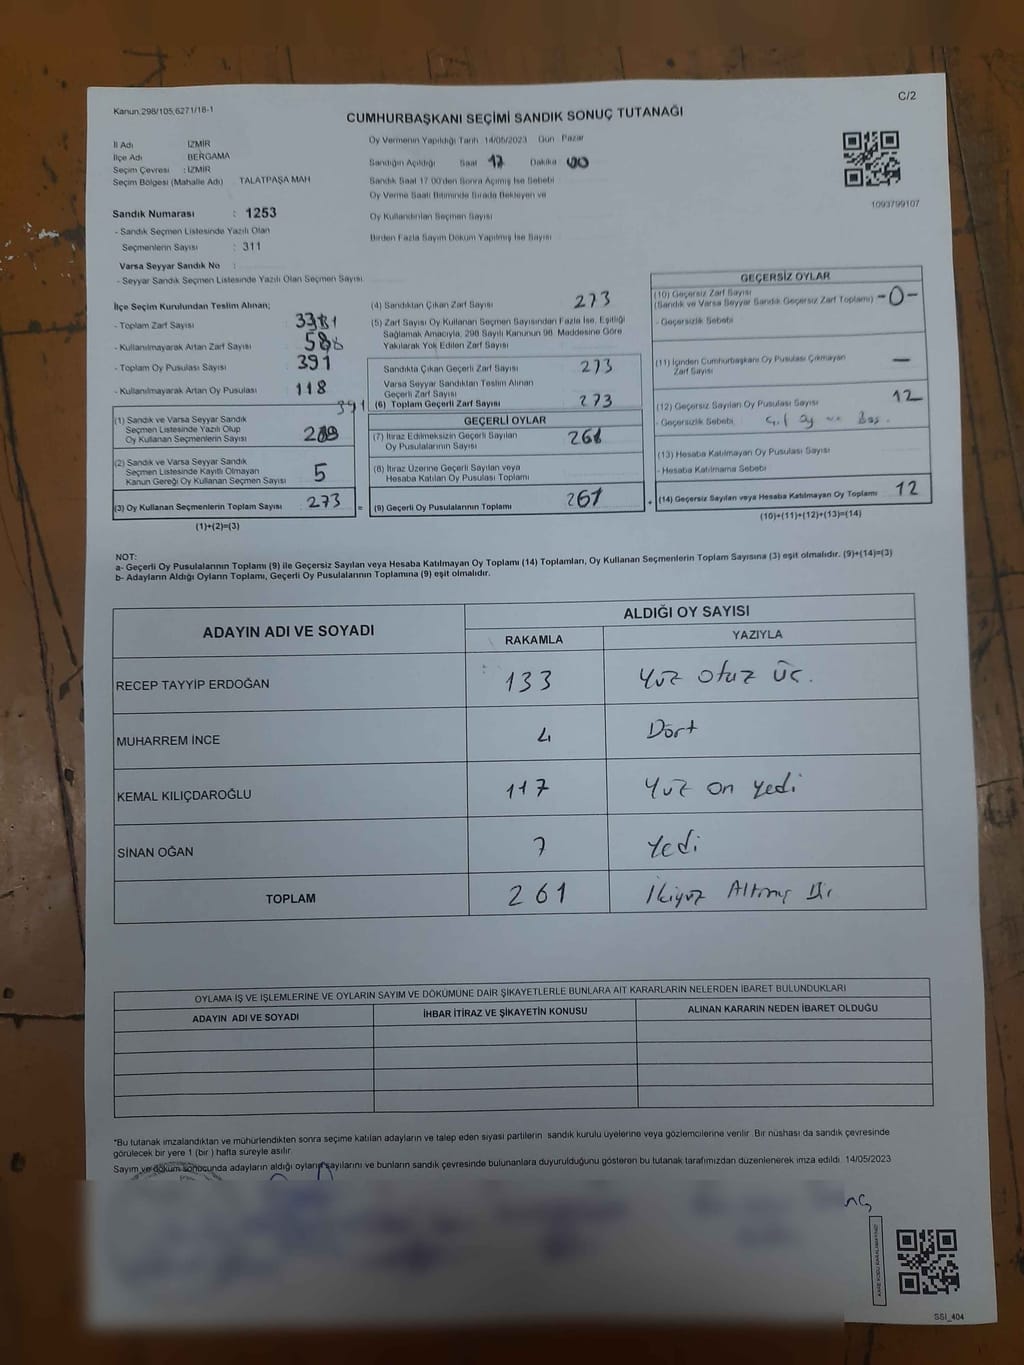 Kanun:298/105,6271/18-1
C/2
CUMHURBAŞKANI SEÇİMİ SANDIK SONUÇ TUTANAĞI
İl Adı İZMİR
İlçe Adı BERGAMA
Seçim Çevresi : İZMİR
Seçim Bölgesi (Mahalle Adı) TALATPAŞA MAH
Oy Vermenin Yapıldığı Tarih 14/05/2023 Gün Pazar
Sandığın Açıldığı Saat 17 Dakika 00
Sandık Saat 17.00'den Sonra Açılmış İse Sebebi
Oy Verme Saati Bitiminde Sırada Bekleyen ve
Oy Kullandırılan Seçmen Sayısı
Birden Fazla Sayım Döküm Yapılmış İse Sayısı
1093799107
Sandık Numarası : 1253
- Sandık Seçmen Listesinde Yazılı Olan
Seçmenlerin Sayısı : 311
Varsa Seyyar Sandık No :
- Seyyar Sandık Seçmen Listesinde Yazılı Olan Seçmen Sayısı:
İlçe Seçim Kurulundan Teslim Alınan;
- Toplam Zarf Sayısı
- Kullanılmayarak Artan Zarf Sayısı
- Toplam Oy Pusulası Sayısı 391
- Kullanılmayarak Artan Oy Pusulası 118
391
(1) Sandık ve Varsa Seyyar Sandık
Seçmen Listesinde Yazılı Olup
Oy Kullanan Seçmenlerin Sayısı
(2) Sandık ve Varsa Seyyar Sandık
Seçmen Listesinde Kayıtlı Olmayan
Kanun Gereği Oy Kullanan Seçmen Sayısı 5
(3) Oy Kullanan Seçmenlerin Toplam Sayısı 273
(1)+(2)=(3)
(4) Sandıktan Çıkan Zarf Sayısı 273
(5) Zarf Sayısı Oy Kullanan Seçmen Sayısından Fazla İse, Eşitliği
Sağlamak Amacıyla, 298 Sayılı Kanunun 98. Maddesine Göre
Yakılarak Yok Edilen Zarf Sayısı
Sandıkta Çıkan Geçerli Zarf Sayısı 273
Varsa Seyyar Sandıktan Teslim Alınan
Geçerli Zarf Sayısı
(6) Toplam Geçerli Zarf Sayısı 273
=
GEÇERLİ OYLAR
(7) İtiraz Edilmeksizin Geçerli Sayılan
Oy Pusulalarının Sayısı 261
(8) İtiraz Üzerine Geçerli Sayılan veya
Hesaba Katılan Oy Pusulası Toplamı
(9) Geçerli Oy Pusulalarının Toplamı 261
+
GEÇERSİZ OYLAR
(10) Geçersiz Zarf Sayısı
(Sandık ve Varsa Seyyar Sandık Geçersiz Zarf Toplamı) -0-
- Geçersizlik Sebebi
(11) İçinden Cumhurbaşkanı Oy Pusulası Çıkmayan
Zarf Sayısı —
(12) Geçersiz Sayılan Oy Pusulası Sayısı 12
- Geçersizlik Sebebi
(13) Hesaba Katılmayan Oy Pusulası Sayısı
- Hesaba Katılmama Sebebi
(14) Geçersiz Sayılan veya Hesaba Katılmayan Oy Toplamı 12
(10)+(11)+(12)+(13)=(14)
NOT:
a- Geçerli Oy Pusulalarının Toplamı (9) ile Geçersiz Sayılan veya Hesaba Katılmayan Oy Toplamı (14) Toplamları, Oy Kullanan Seçmenlerin Toplam Sayısına (3) eşit olmalıdır. (9)+(14)=(3)
b- Adayların Aldığı Oyların Toplamı, Geçerli Oy Pusulalarının Toplamına (9) eşit olmalıdır.
ADAYIN ADI VE SOYADI
ALDIĞI OY SAYISI
RAKAMLA YAZIYLA
RECEP TAYYİP ERDOĞAN 133 Yüz otuz üç.
MUHARREM İNCE 4 Dört
KEMAL KILIÇDAROĞLU 117 Yüz on yedi
SİNAN OĞAN 7 Yedi
TOPLAM 261 İkiyüz Altmış Bir
OYLAMA İŞ VE İŞLEMLERİNE VE OYLARIN SAYIM VE DÖKÜMÜNE DAİR ŞİKAYETLERLE BUNLARA AİT KARARLARIN NELERDEN İBARET BULUNDUKLARI
ADAYIN ADI VE SOYADI İHBAR İTİRAZ VE ŞİKAYETİN KONUSU ALINAN KARARIN NEDEN İBARET OLDUĞU
*Bu tutanak imzalandıktan ve mühürlendikten sonra seçime katılan adayların ve talep eden siyasi partilerin sandık kurulu üyelerine veya gözlemcilerine verilir. Bir nüshası da sandık çevresinde
görülecek bir yere 1 (bir) hafta süreyle asılır.
Sayım ve döküm sonucunda adayların aldığı oyların sayılarını ve bunların sandık çevresinde bulunanlara duyurulduğunu gösteren bu tutanak tarafımızdan düzenlenerek imza edildi. 14/05/2023
KARE KODU KARALAMAYINIZ!
SSI_404